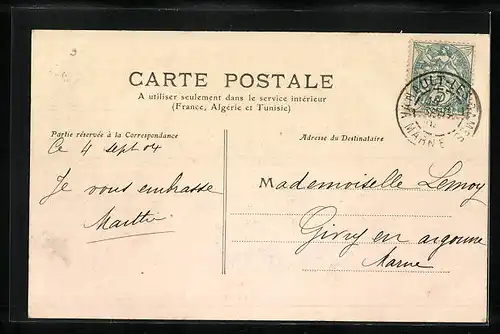 CARTE POSTALE
A utiliser seulement dans le service intérieur
(France, Algérie et Tunisie)
Partie réservée à la Correspondance
Adresse du Destinataire
Ce 4 sept 04
Je vous embrasse
Marthe
Mademoiselle Lemoy
Givry en argonne
Marne
VANAULT-LES-DAMES
MARNE